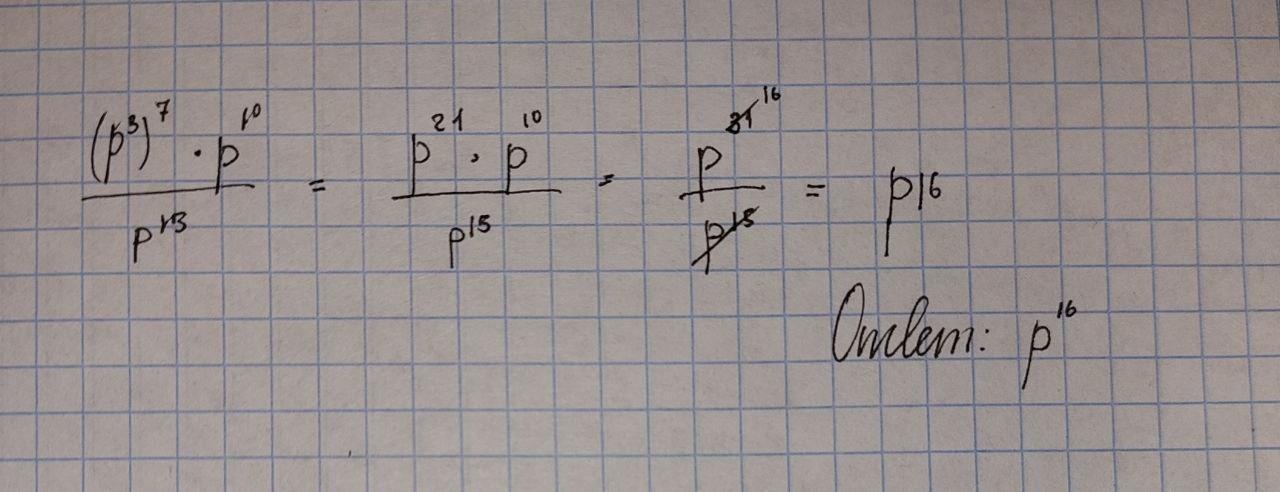 (p³)⁷ · p¹⁰ / p¹³ = p²¹ · p¹⁰ / p¹⁵ = p³¹ ¹⁶ / p¹⁵ = p16
Ответ: p¹⁶